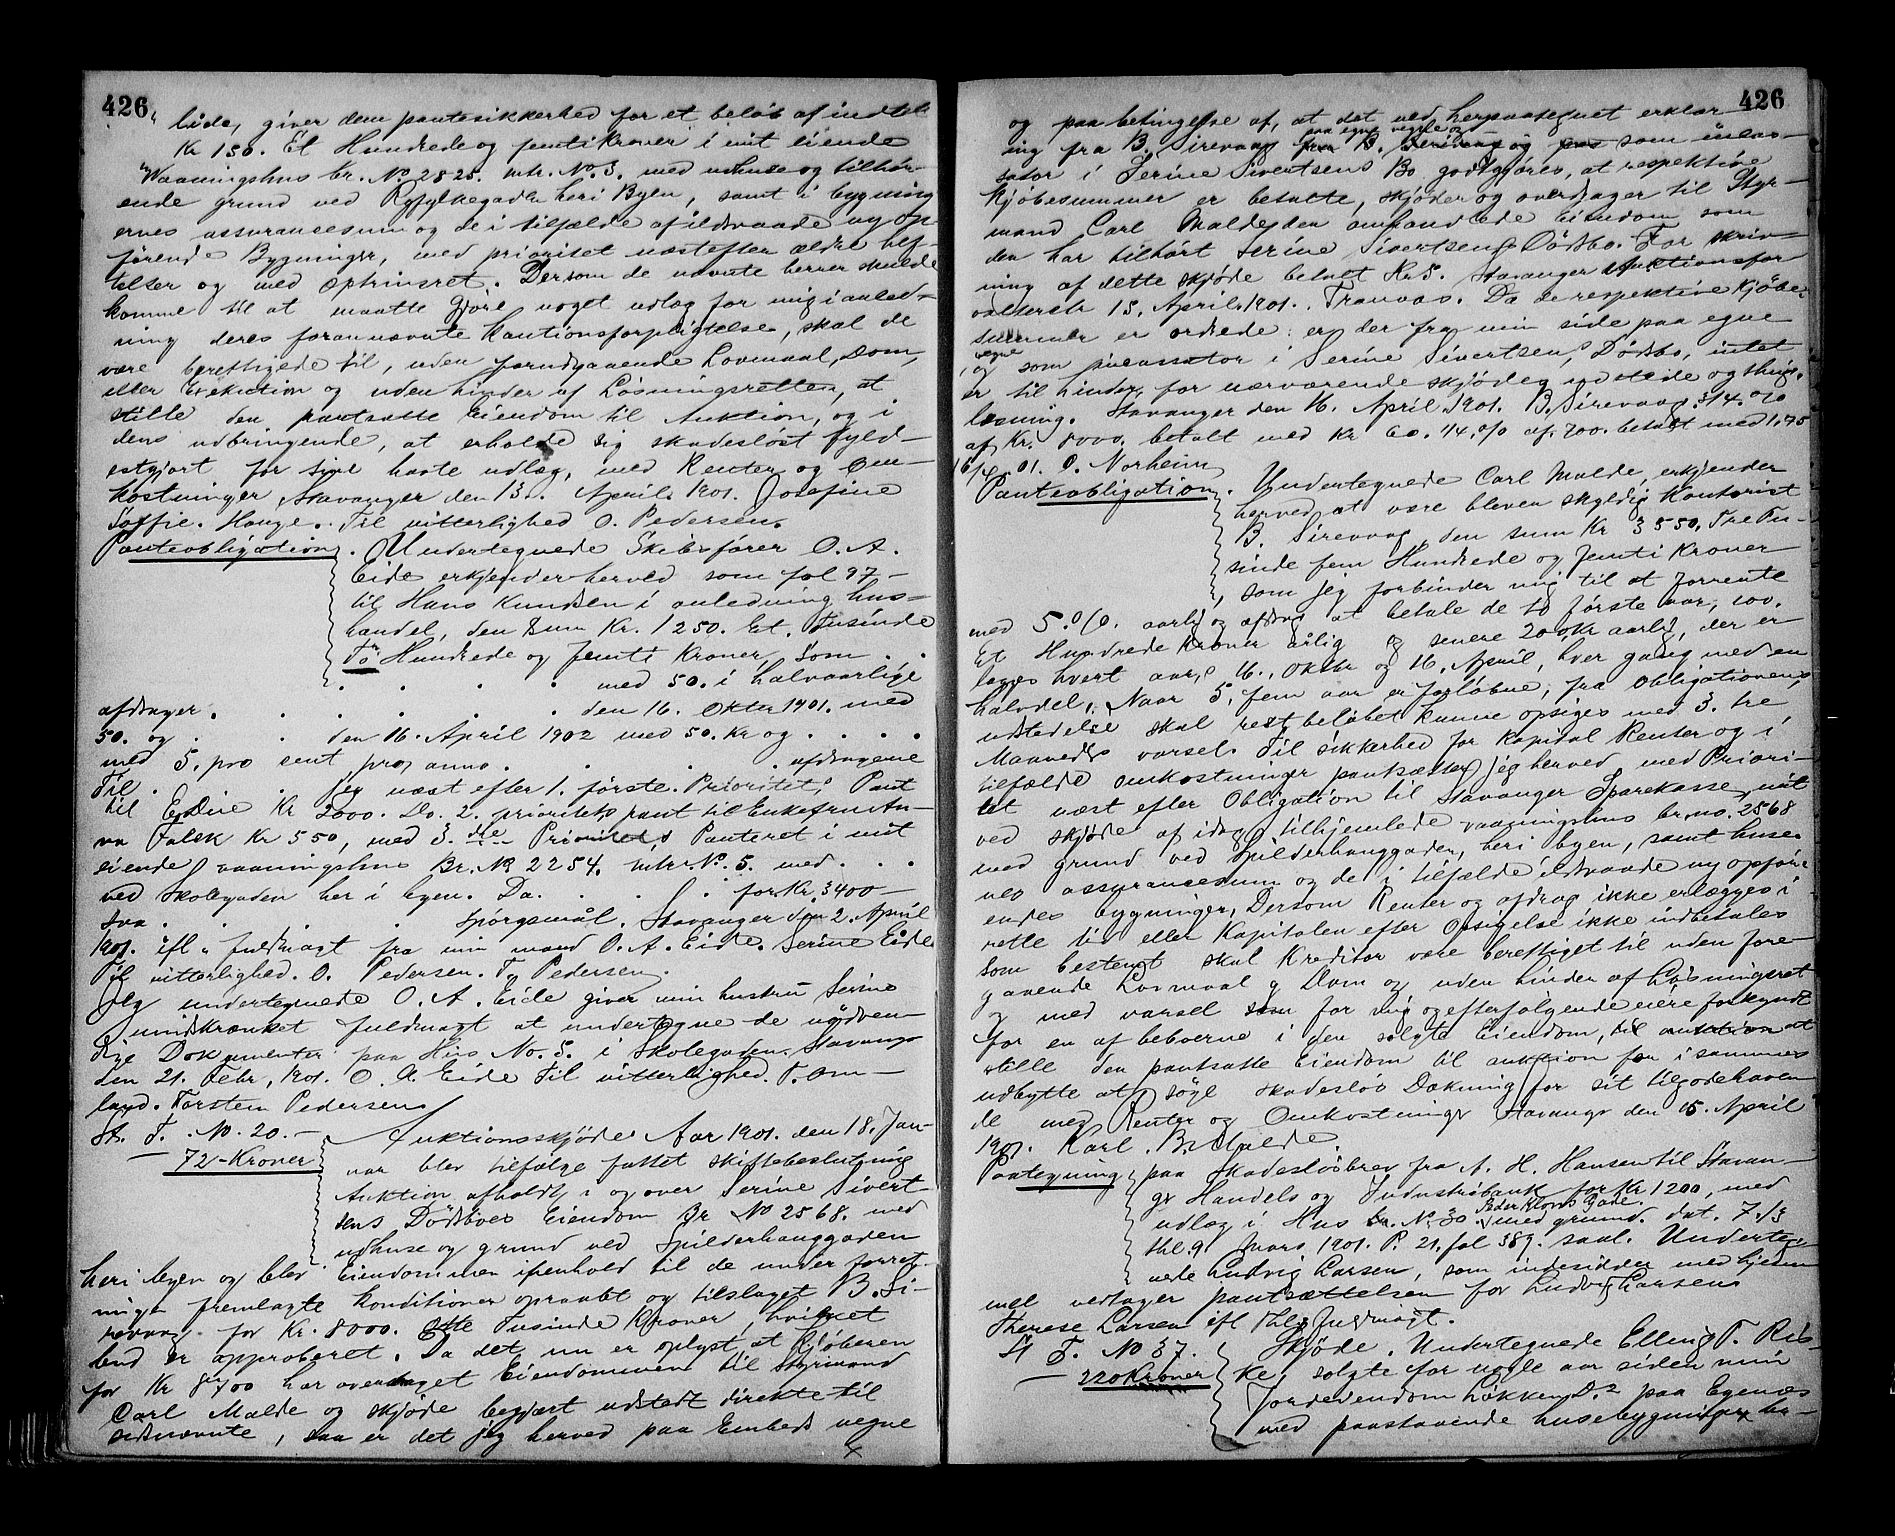 426
lide, giver dem pantesikkerhed for et beløb af indtil
Kr 150. Et Hundrede og femti kroner i mit eiende
Vaaningshus br. No 2825. mtr. No. 3. med udhuse og tilhør-
ende grund ved Ryfylkegaden heri Byen, samt i bygning
ernes assurancesum og de i tilfælde af ildsvaade ny op
førende Bygninger, med prioritet næstefter ældre hef-
telser og med optrinsret. Dersom de nævnte herrer skulde
komme til at maatte gjøre noget udlæg for mig i anled-
ning deres forannævnte Kautionsforpligtelse, skal de
være berettigede til, uden forudgaaende Lovmaal, Dom,
eller Exekution og uden hinder af Løsningsretten, at
stille den pantsatte Eiendom til Auktion, og i
dens udbringende, at erholde sig skadesløst fyld-
estgjort for sine havte udlæg, med Renter og Om-
kostninger, Stavanger den 13. April 1901. Josefine
Soffie. Hauge. Til vitterlighed O. Pedersen.
Panteobligation. Undertegnede Skibsfører O. A.
Eide erkjender herved som fol 97-
til Hans Knudsen i anledning hus-
handel, den Sum Kr. 1250. Et. Tusinde
To Hundrede og femti Kroner, som . .
. . . . med 50. i halvaarlige
afdrager. . . . . den 16. Oktbr 1901. med
50. og . . den 16. April 1902 med 50. Kr og . . . .
med 5. pro sent pro, anno. . . . . afdragene
Til . . . jeg næst efter 1. første. Prioritets Pant
til Kr 2000. Do. 2. prioritets pant til Enkefru An-
na Falck Kr 550, med 3. die Prioritets, Panteret i mit
eiende vaaningshus Br. No 2254. mtr. No. 5. med . . .
ved Skolegaden her i byen. Da. . . . . for. Kr. 3400-
sva . . . . spørgsmål. Stavanger den 2. April
1901. Efl. fuldmagt fra min mand O. A. Eide. Serine Eide
Til vitterlighed. O. Pedersen. T. Pedersen.
Jeg undertegnede O. A. Eide giver min hustru Serine
uindskrænket fuldmagt at undertegne de nødven-
dige Dokumenter paa Hus No. 5. i Skolegaden. Stavanger
den 21. Febr, 1901. O. A. Eide Til vitterlighed. T. Om-
land. Torsten Pedersen
St. T. No. 20. — Auktionsskjøde Aar 1901. den 18. Jan-
72 - Kroner uar blev tilfølge fattet skiftebeslutning
Auktion afholdt, i og over Serine Sivert-
sens Dødsboes Eiendom Br No 2568. med
udhuse og grund ved Spilderhauggaden
heri byen og blev Eiendommen ihenhold til de under forret-
ninge fremlagte Konditioner opraabt og tilslaget B. Si-
revaag for Kr. 8000. Otte Tusinde Kroner, hvilket
bud er approberet. Da det nu er oplyst at Kjøberen
for Kr 8700 har overdraget Eiendommen til Styrmand
Carl Malde og skjøde begjært udstedt direkte til
sidstnævnte, saa er det jeg herved paa Embeds vegne
426
og paa betingelse af, at det ved herpaategnet erklær-
paa egne vegne og
ing fra B. Sirevaag og som incas-
sator i Serine Sivertsens Bo godtgjøres, at respektive
kjøbesummer er betalte, skjøder og overdrager til Styr-
mand Carl Malde den omhandlede Eiendom som
den har tilhørt Serine Sivertsens Dødsbo. For skriv-
ning af dette skjøde betalt Kr 5. Stavanger Auktionsfor
valterembr 15. April 1901. Tranaas. Da de respektive Kjøbe-
summer er ordnede er der fra min side paa egne
vegne
og som incassator i Serine Sivertsens Dødsbo, intet
er til hinder, for nærværende skjødes udstede og thing-
læsning. Stavanger den 16. April 1901. B. Sirevaag. 3/4. o/o
af Kr. 8000. betalt med Kr 60. 1/4. o/o af. 700. betalt med 1,75
16/4 - 01. O. Norheim
Panteobligation. Undertegnede Carl Malde, erkjender
herved at være bleven skyldig Kontorist
B. Sirevaag, den sum Kr 3550. Tre Tu-
sinde fem Hundrede og femti kroner
som jeg forbinder mig til at forrente
med 5. o/o. aarlig og afdrag at betale de to første aar, 100.
Et Hundrede kroner årlig og senere 200 Kr aarlig, der er-
lægges hvert aars 16. Oktbr og 16. April, hver gang med en
halvdel, Naar 5, fem aar er forløbne, fra Obligationens
udstedelse skal restbeløbet kunne opsiges med 3. tre
Maaneders varsel. Til sikkerhed for Kapital Renter og i
tilfælde omkostninger pantsætter jeg herved med Priori-
tet næst efter Obligation til Stavanger Sparekasse, mit
ved skjøde af idag tilhjemlede vaaningshus br. no. 2568
med grund ved Spilderhauggaden, heri byen, samt huse-
nes assurancesum og de i tilfælde ildsvaade ny opfør-
endes bygninger, Dersom Renter og afdrag ikke erlægges i
rette tid eller Kapitalen efter Opsigelse ikke indbetales
som bestemt skal Kreditor være berettiget til uden fore-
gaaende Lovmaal og Dom og uden hinder af Løsningsret
og med varsel som for mig og efterfølgende eiere forkyndt
for en af beboerne i den solgte Eiendom, til auktion at
stille den pantsatte Eiendom til auktion for i sammes
udbytte at søge skadesløs Dækning for sit tilgodehaven
de med Renter og Omkostninger Stavanger den 15. April
1901. Karl. B. Malde
Paategning paa Skadesløsbrev fra A. H. Hansen til Stavan-
ger Handels og Industribank for Kr 1200, med
Peder Klows Gade
udlæg i Hus br. No. 30 med grund. dat. 7/3
thl. 9 Mars 1901. P. 21. fol 389. saal. Underteg-
nede Ludvig Larsen, som indesidder med hjem
mel vedtager pantsættelsen for Ludvig Larsen
Therese Larsen efl Thl. fuldmagt.
St T. No 37. Skjøde. Undertegnede Elling T. Ris-
220 Kroner ke, solgte for nogle aar siden min
Jordeiendom Løkken D. 2 paa Egenæs
med paastaaende husebygninger, be-